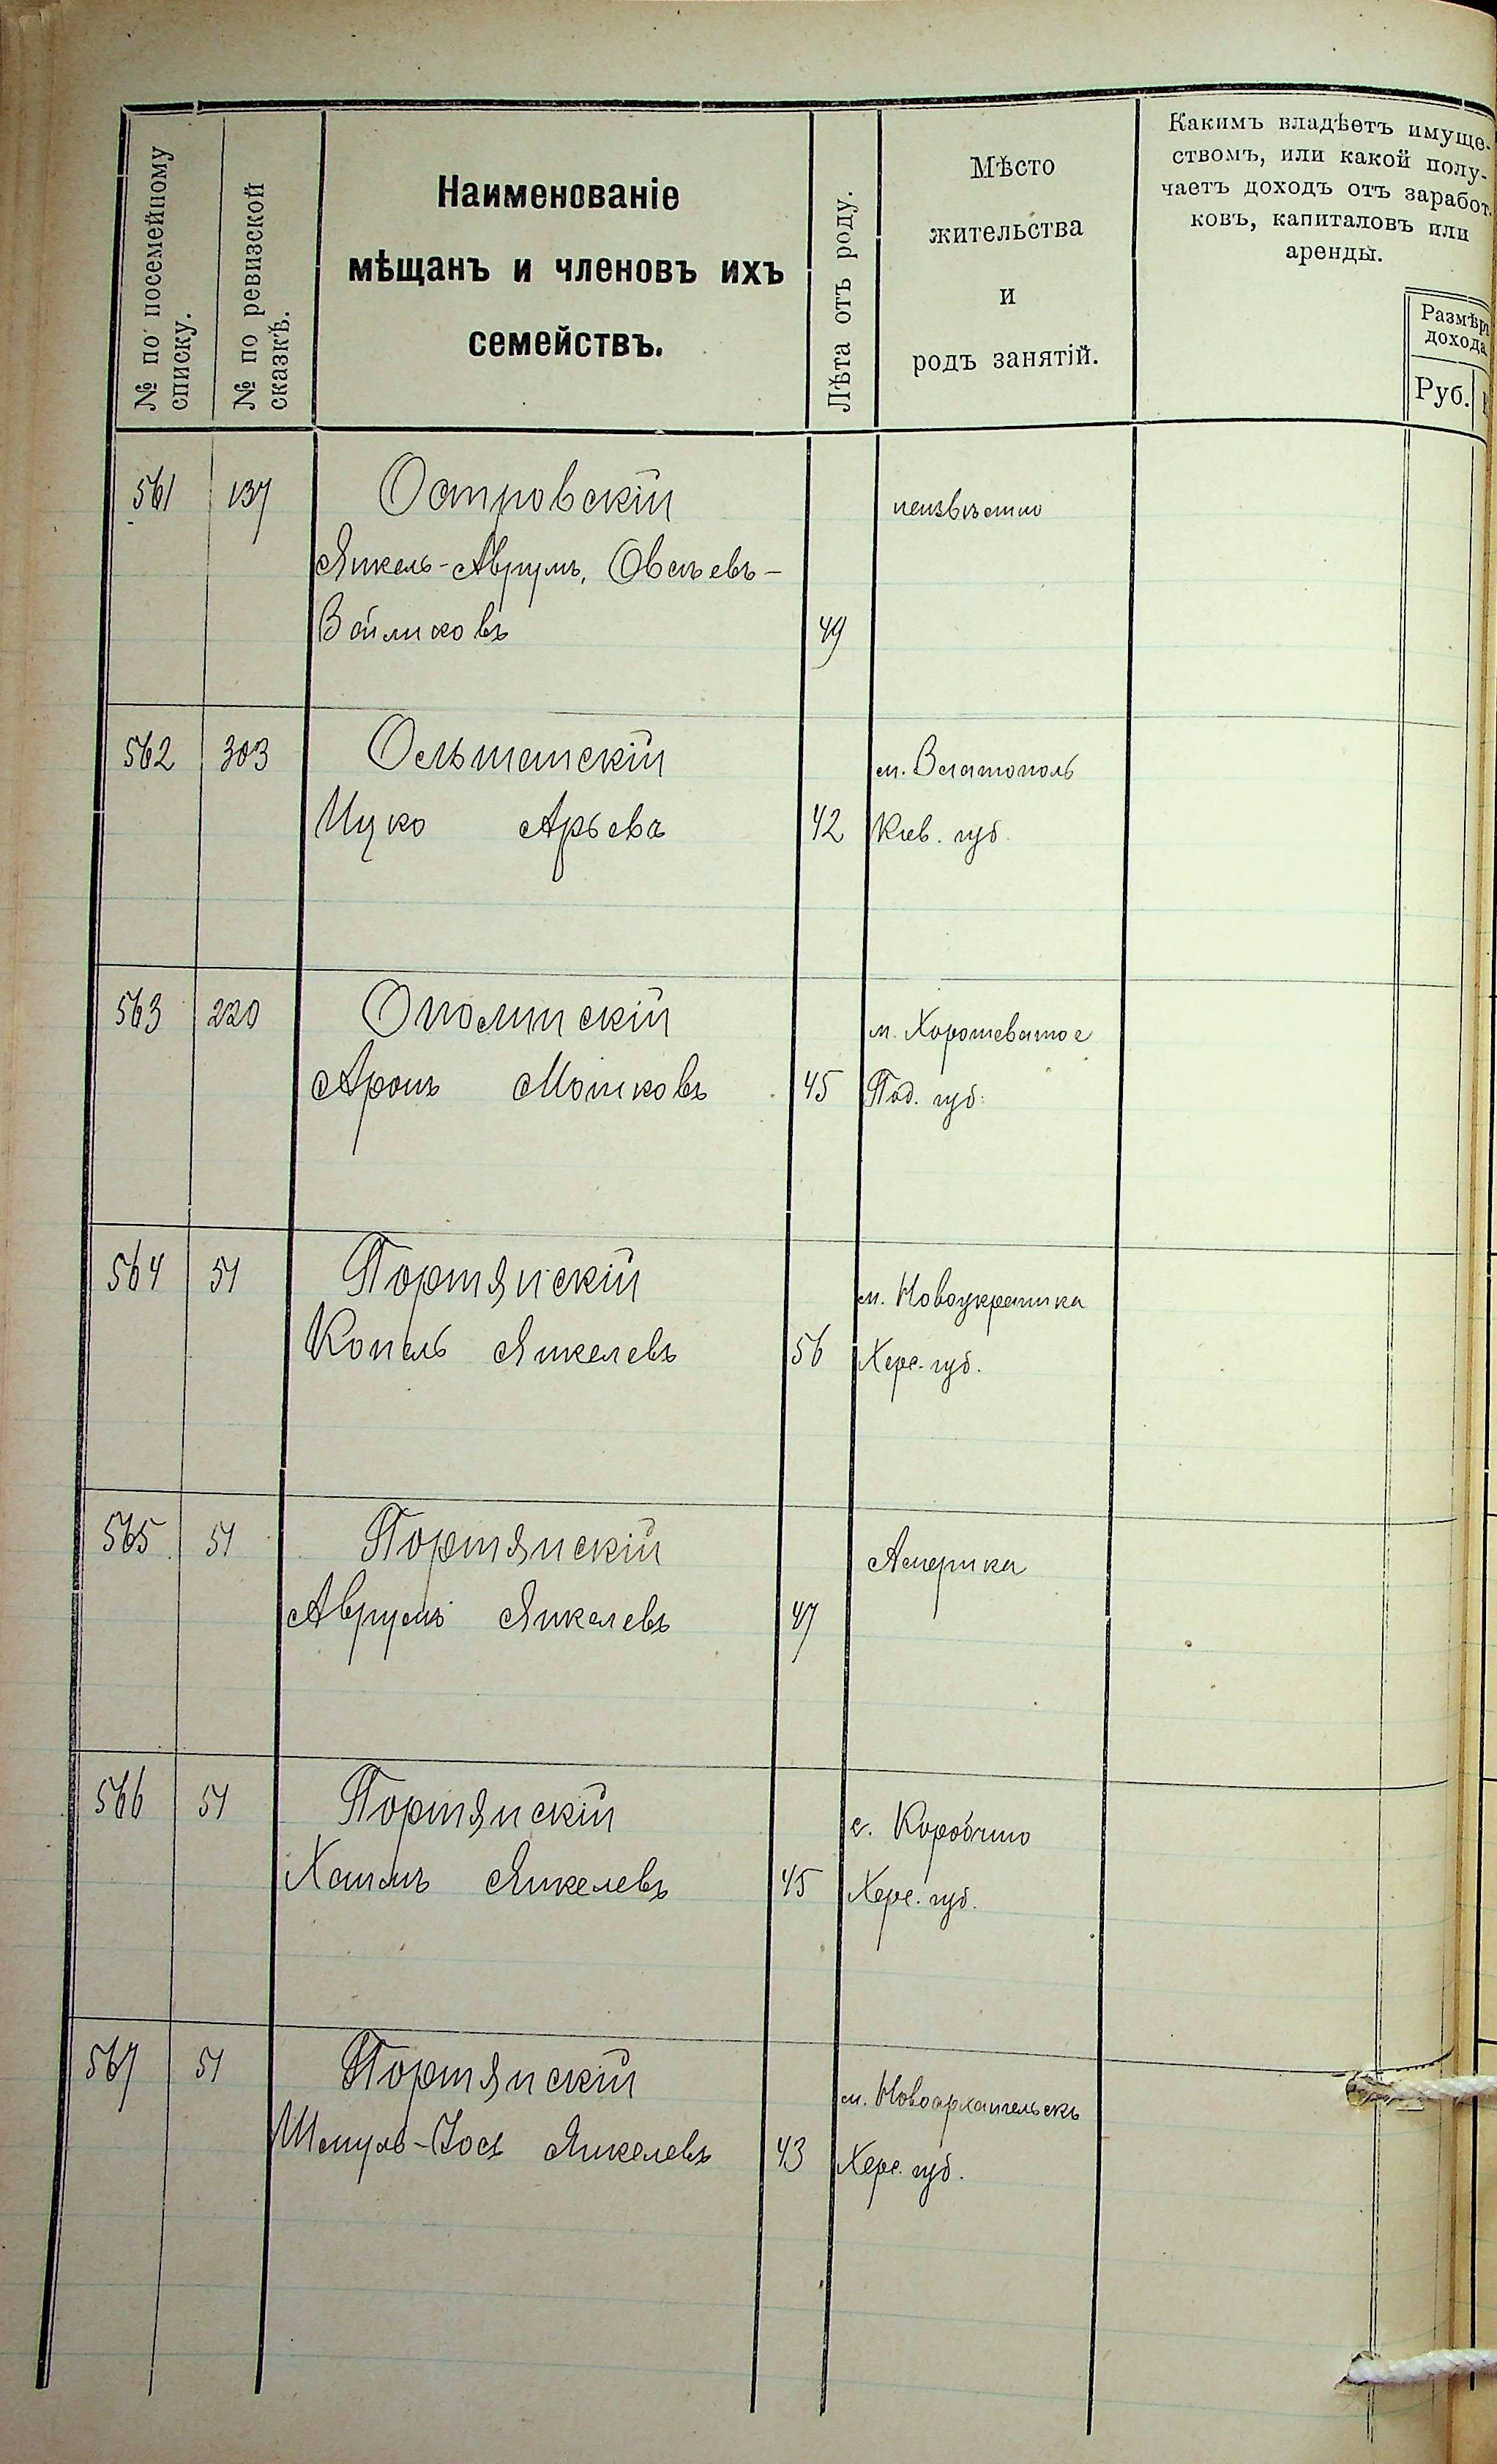 № по посемейному
списку.
№ по ревизской
сказкѣ.
Наименованіе
мѣщанъ и членовъ ихъ
семействъ.
Лѣта отъ роду.
Мѣсто
жительства
и
родъ занятій.
Какимъ владѣетъ имуще-
ствомъ, или какой полу-
чаетъ доходъ отъ заработ-
ковъ, капиталовъ или
аренды.
Размѣръ
дохода
Руб.
561 137 Островскій неизвѣстно
Янкель-Аврумъ, Овсѣевъ-
49
562 303 Ольшанскій м. Златополь
Ицко Арьевъ 42 Кіев. губ.
563 220 Ополинскій м. Хорошеватое
Аронъ Мошковъ 45 Под. губ.
564 51 Портянскій м. Новоукраинка
Копель Янкелевъ 56 Херс. губ.
565 51 Портянскій Америка
Аврумъ Янкелевъ 47
566 51 Портянскій с. Коробчино
Хаимъ Янкелевъ 45 Херс. губ.
567 51 Портянскій м. Новоархангельскъ
Шмуль-Іось Янкелевъ 43 Херс. губ.